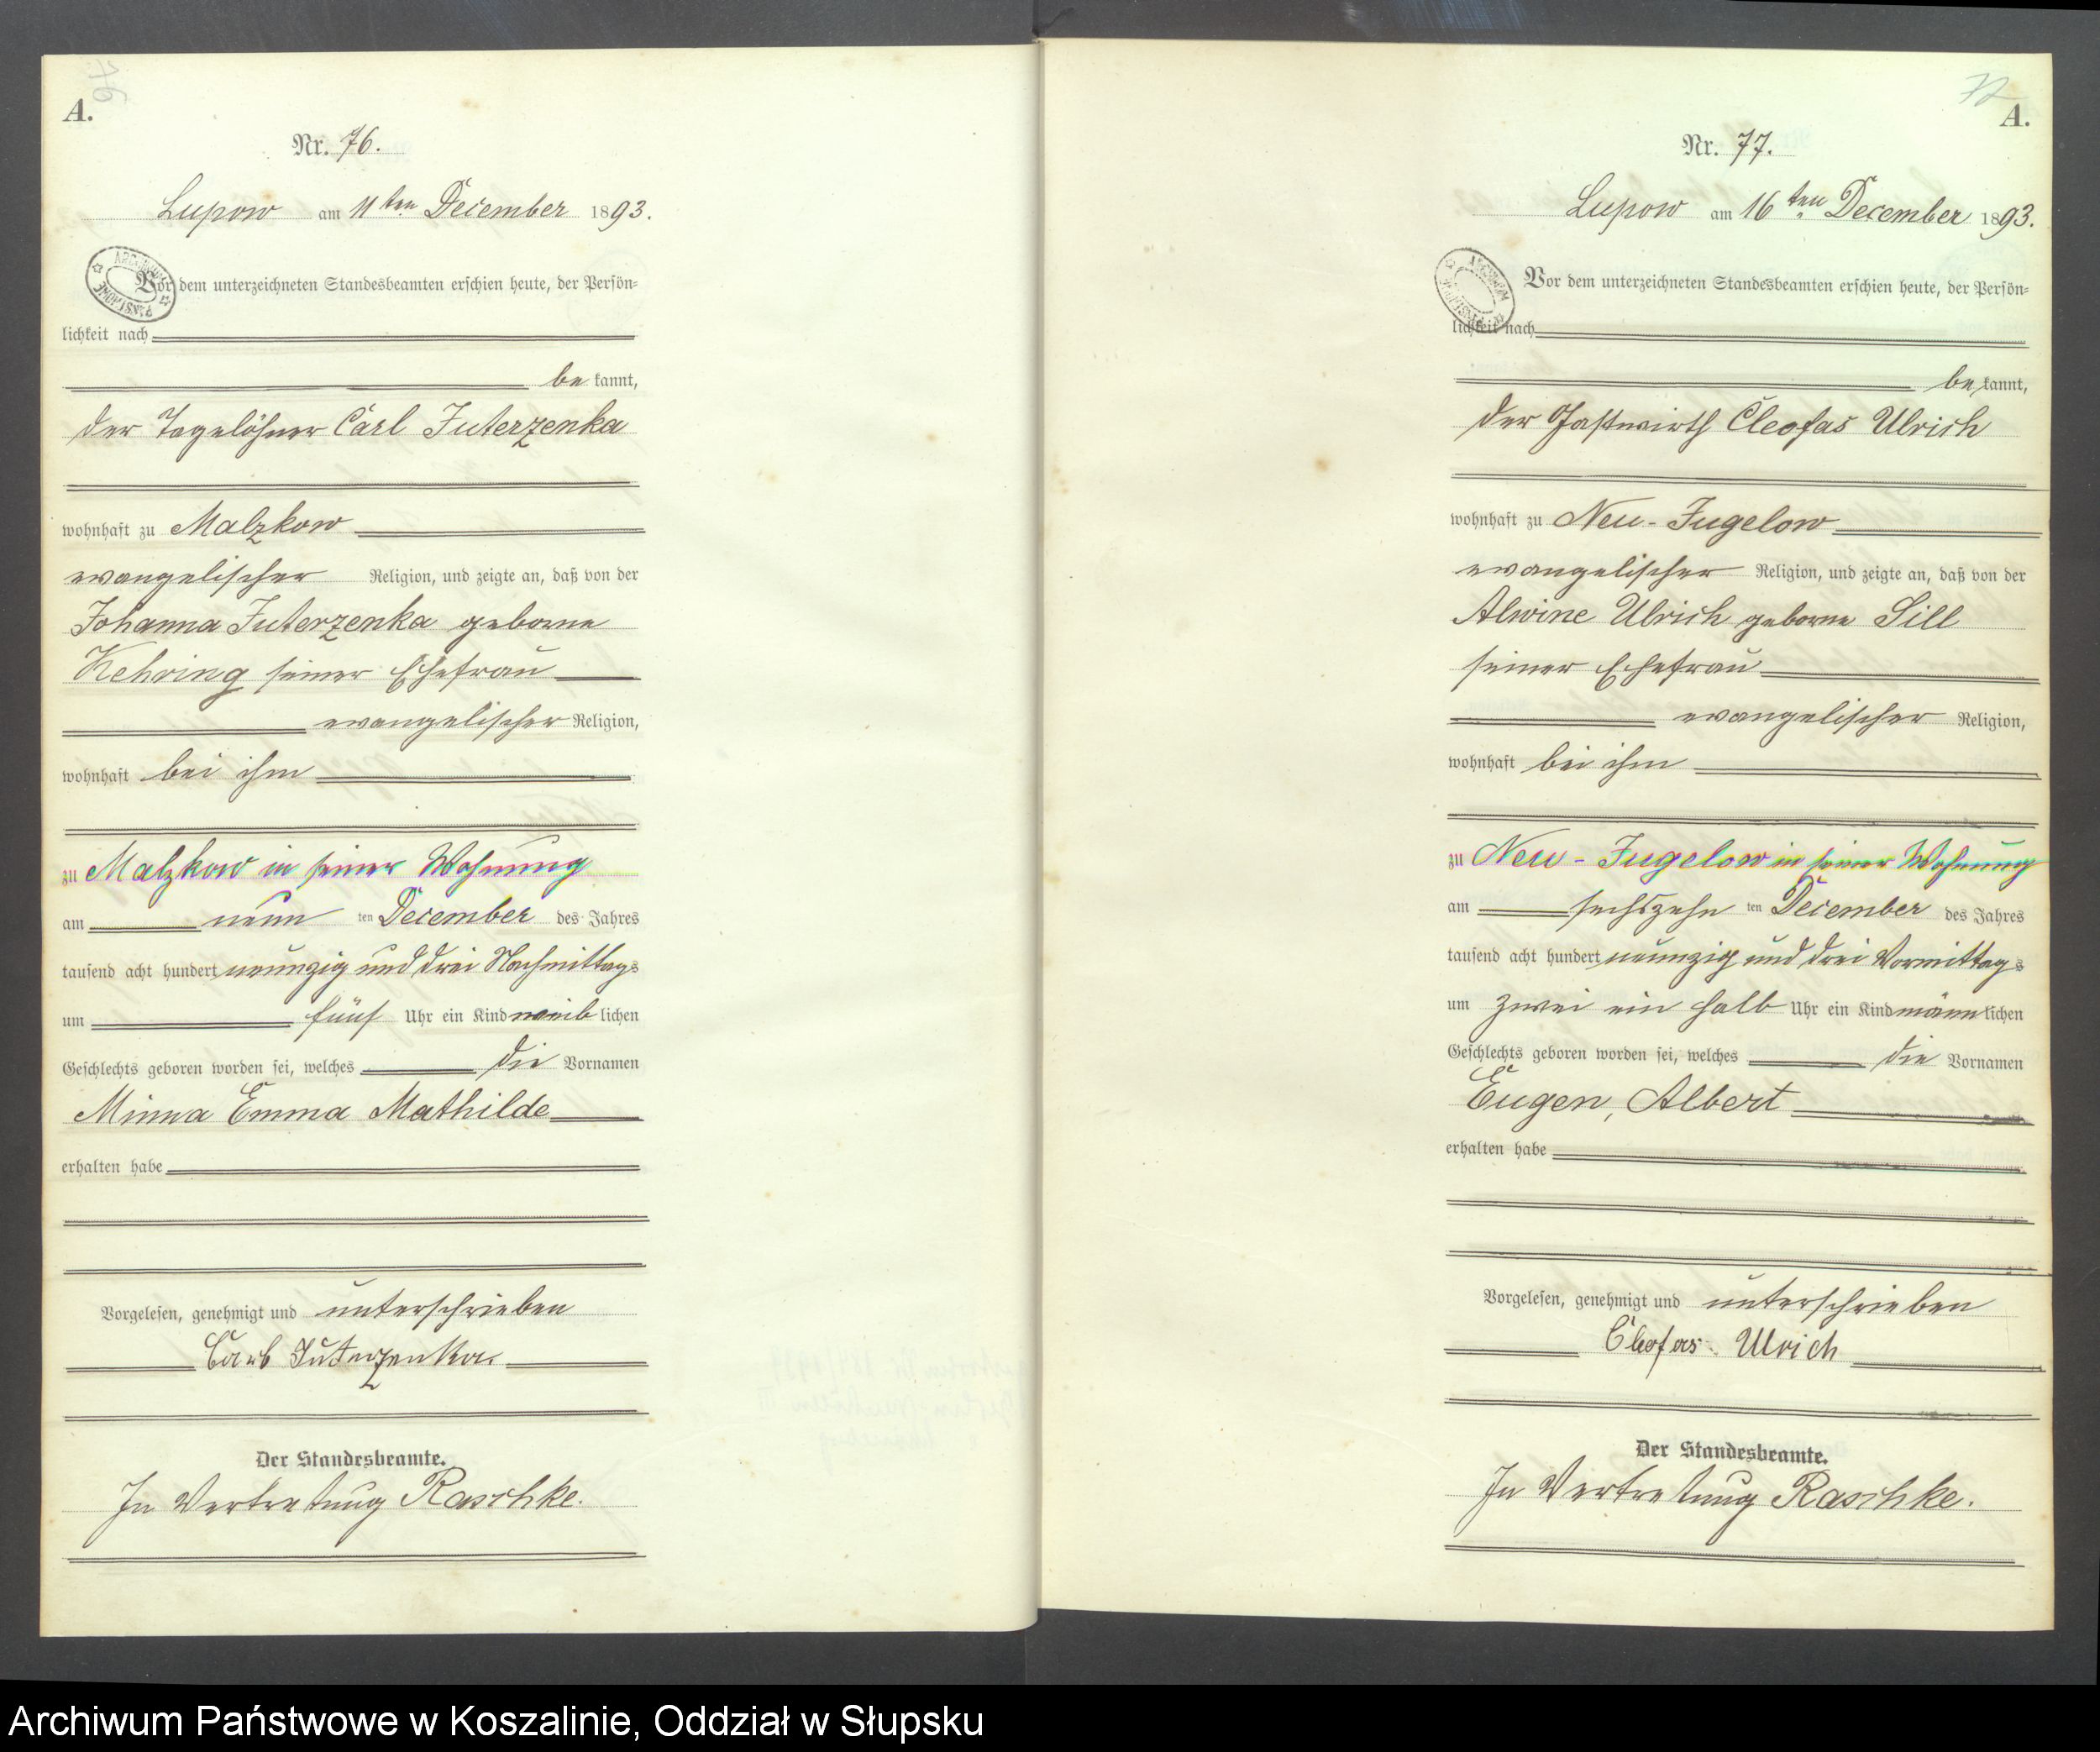 A.
Nr. 76.
Lupow am 11ten December 1893.
Vor dem unterzeichneten Standesbeamten erschien heute, der Persön-
lichkeit nach
be kannt,
der Tagelöhner Carl Juterzenka
wohnhaft zu Malzkow
evangelischer Religion, und zeigte an, daß von der
Johanna Juterzenka geborne
Kehring seiner Ehefrau
evangelischer Religion,
wohnhaft bei ihm
zu Malzkow in seiner Wohnung
am neun ten December des Jahres
tausend acht hundert neunzig und drei Nachmittags
um fünf Uhr ein Kind weib lichen
Geschlechts geboren worden sei, welches die Vornamen
Minna Emma Mathilde
erhalten habe
Vorgelesen, genehmigt und unterschrieben
Carl Juterzenka
Der Standesbeamte.
In Vertretung Raschke.
A.
Nr. 77.
Lupow am 16ten December 1893.
Vor dem unterzeichneten Standesbeamten erschien heute, der Persön-
lichkeit nach
be kannt,
der Gastwirth Cleofas Ulrich
wohnhaft zu Neu-Jugelow
evangelischer Religion, und zeigte an, daß von der
Alwine Ulrich geborne Sill
seiner Ehefrau
evangelischer Religion,
wohnhaft bei ihm
zu Neu-Jugelow in seiner Wohnung
am sechszehn ten December des Jahres
tausend acht hundert neunzig und drei Vormittags
um zwei ein halb Uhr ein Kind männ lichen
Geschlechts geboren worden sei, welches die Vornamen
Eugen, Albert
erhalten habe
Vorgelesen, genehmigt und unterschrieben
Cleofas Ulrich
Der Standesbeamte.
In Vertretung Raschke.
Archiwum Państwowe w Koszalinie, Oddział w Słupsku